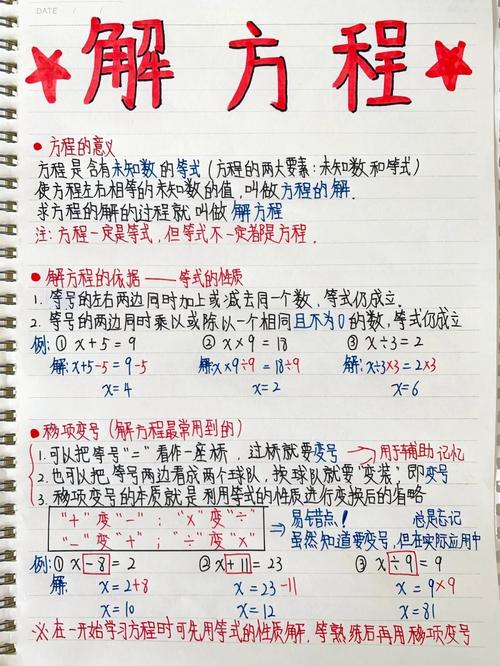 DATE / /
解方程
• 方程的意义
方程是含有未知数的等式(方程的两大要素:未知数和等式)
使方程左右相等的未知数的值,叫做方程的解.
求方程的解的过程就叫做解方程
注:方程一定是等式,但等式不一定都是方程.
• 解方程的依据——等式的性质
1. 等号的左右两边同时加上或减去同一个数,等式仍成立.
2. 等号的两边同时乘以或除以一个相同且不为0的数,等式仍成立
例:① x+5=9 ② x×9=18 ③ x÷3=2
解:x+5-5=9-5 解:x×9÷9=18÷9 解:x÷3×3=2×3
x=4 x=2 x=6
• 移项变号(解方程最常用到的)
1.可以把等号"="看作一座桥,过桥就要变号 → 用于辅助记忆
2.也可以把等号两边看成两个球队,换球队就要"变装",即变号
3.移项变号的本质就是利用等式的性质进行变换后的省略
"+"变"-";"×"变"÷" → 易错点! 总是忘记
"-"变"+";"÷"变"×" 虽然知道要变号,但在实际应用中
例:① x-8=2 ② x+11=23 ③ x÷9=9
解: x=2+8 x=23-11 x=9×9
x=10 x=12 x=81
※在一开始学习方程时可先用等式的性质解,等熟练后再用移项变号